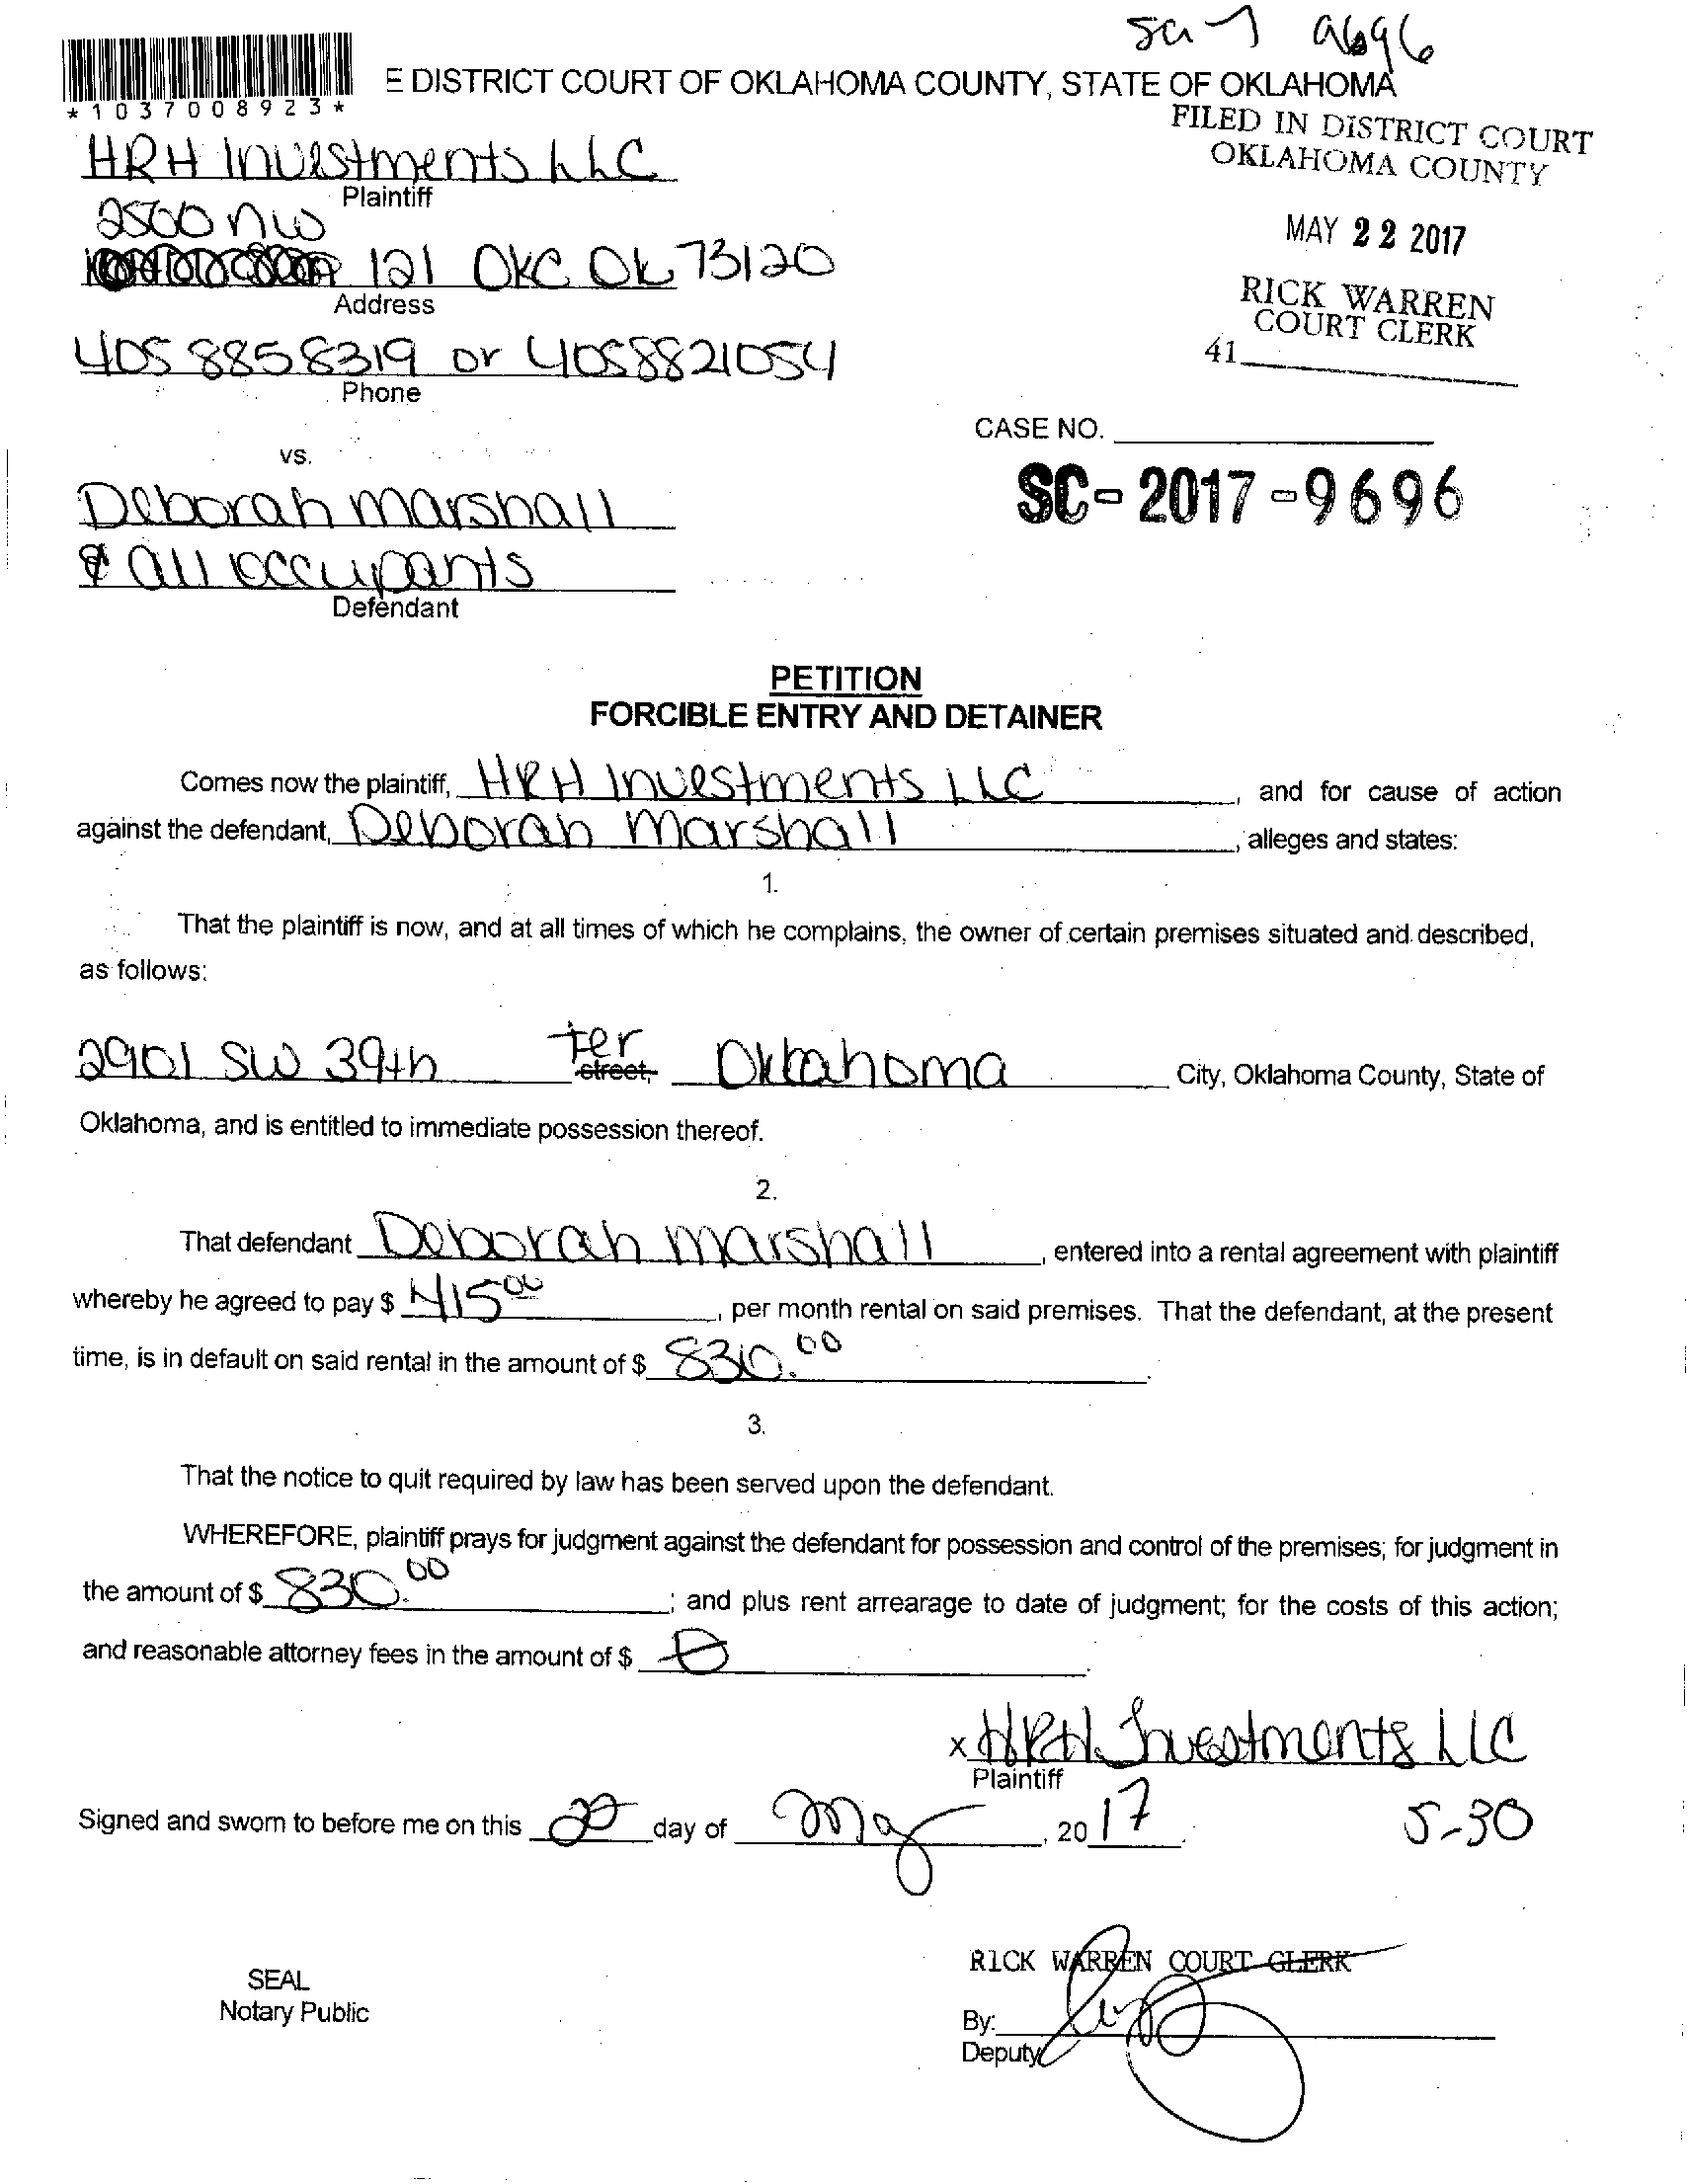 9696
E DISTRICT COURT OF OKLAHOMA COUNTY, STATE OF OKLAHOMA
*1037008923*
FILED IN DISTRICT COURT
OKLAHOMA COUNTY
HRH Investments LLC
Plaintiff
MAY 22 2017
2500 NW
121 OKC OK 73120
Address
RICK WARREN
COURT CLERK
41
405 8858319 or 4058821054
Phone
CASE NO.
vs.
SC-2017-9696
Deborah Marshall
& all occupants
Defendant
PETITION
FORCIBLE ENTRY AND DETAINER
Comes now the plaintiff, HRH Investments LLC, and for cause of action
against the defendant, Deborah Marshall, alleges and states:
1.
That the plaintiff is now, and at all times of which he complains, the owner of certain premises situated and described,
as follows:
2901 SW 39th ter street, Oklahoma City, Oklahoma County, State of
Oklahoma, and is entitled to immediate possession thereof.
2.
That defendant Deborah Marshall, entered into a rental agreement with plaintiff
whereby he agreed to pay $ 415 00, per month rental on said premises. That the defendant, at the present
time, is in default on said rental in the amount of $ 830.00.
3.
That the notice to quit required by law has been served upon the defendant.
WHEREFORE, plaintiff prays for judgment against the defendant for possession and control of the premises; for judgment in
the amount of $ 830.00; and plus rent arrearage to date of judgment; for the costs of this action;
and reasonable attorney fees in the amount of $ 0.
x HRH Investments LLC
Plaintiff
Signed and sworn to before me on this day of May, 2017.
5-30
SEAL
Notary Public
RICK WARREN COURT CLERK
By:
Deputy